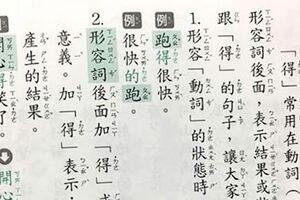 「得」常用在動
形容詞後面，表示結果或
跟「得」的句子，讓大家
1. 形容「動詞」的狀態時
例 跑得很快。
例 很快的跑。
2. 形容詞後面加「得」
意義。加「得」表示，
產生的結果。
心得笑了。 開心